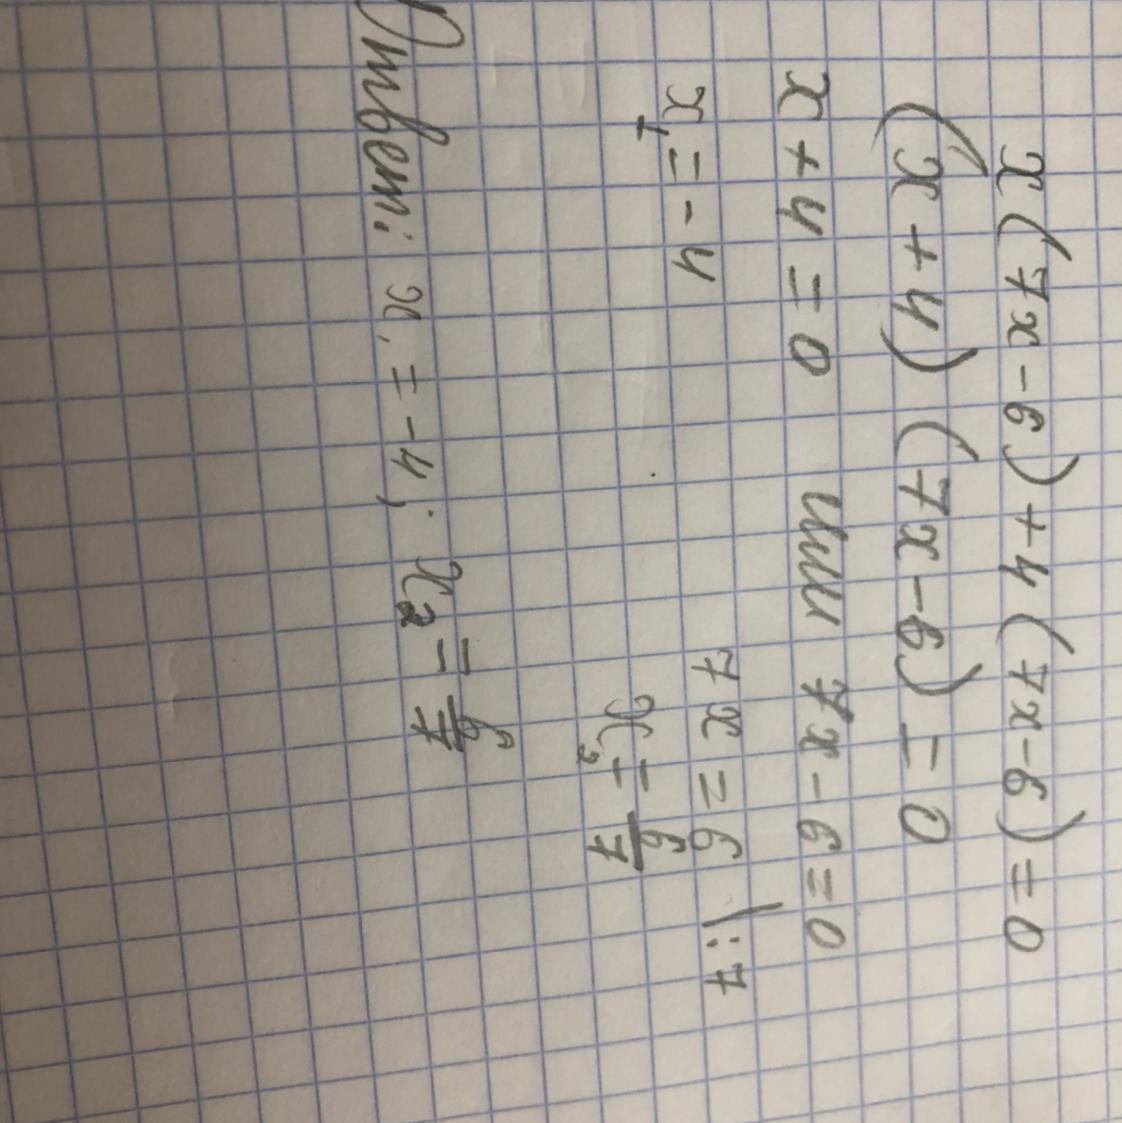 x(7x-6)+4(7x-6)=0
(x+4)(7x-6)=0
x+4=0 или 7x-6=0
x₁=-4 7x=6 |:7
x₂=6/7
Ответ: x₁=-4; x₂=6/7